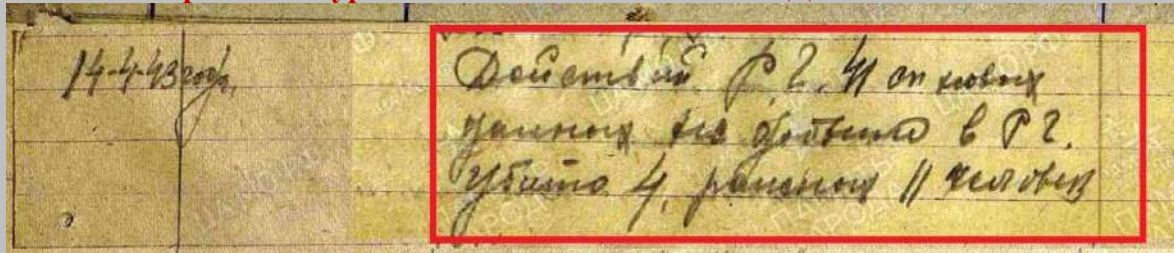 14-4-43 года.
Действий Р.Г. 41 сп новых
данных не добыто в РГ.
Убито 4, раненых 11 человек